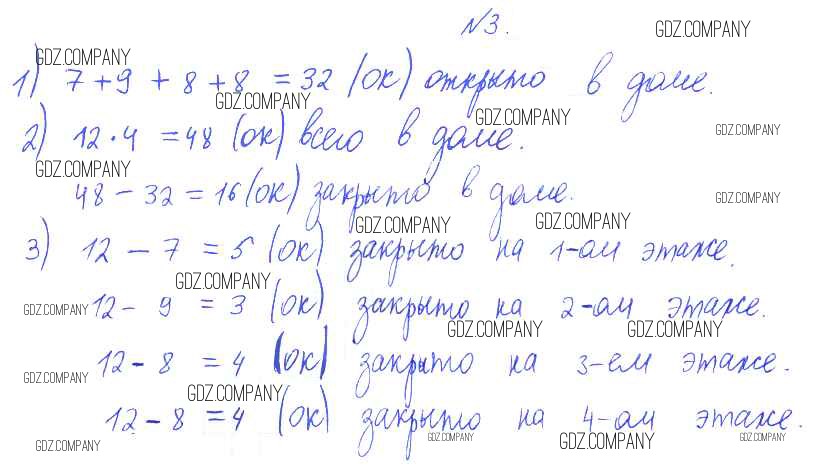 №3.
GDZ.COMPANY
GDZ.COMPANY
1) 7 + 9 + 8 + 8 = 32 (ок) открыто в доме.
GDZ.COMPANY
GDZ.COMPANY
GDZ.COMPANY
2) 12 · 4 = 48 (ок) всего в доме.
GDZ.COMPANY
48 - 32 = 16 (ок) закрыто в доме.
GDZ.COMPANY
GDZ.COMPANY
GDZ.COMPANY
3) 12 - 7 = 5 (ок) закрыто на 1-ом этаже.
GDZ.COMPANY
GDZ.COMPANY
12 - 9 = 3 (ок) закрыто на 2-ом этаже.
GDZ.COMPANY
GDZ.COMPANY
12 - 8 = 4 (ок) закрыто на 3-ем этаже.
GDZ.COMPANY
GDZ.COMPANY
12 - 8 = 4 (ок) закрыто на 4-ом этаже.
GDZ.COMPANY
GDZ.COMPANY
GDZ.COMPANY
GDZ.COMPANY